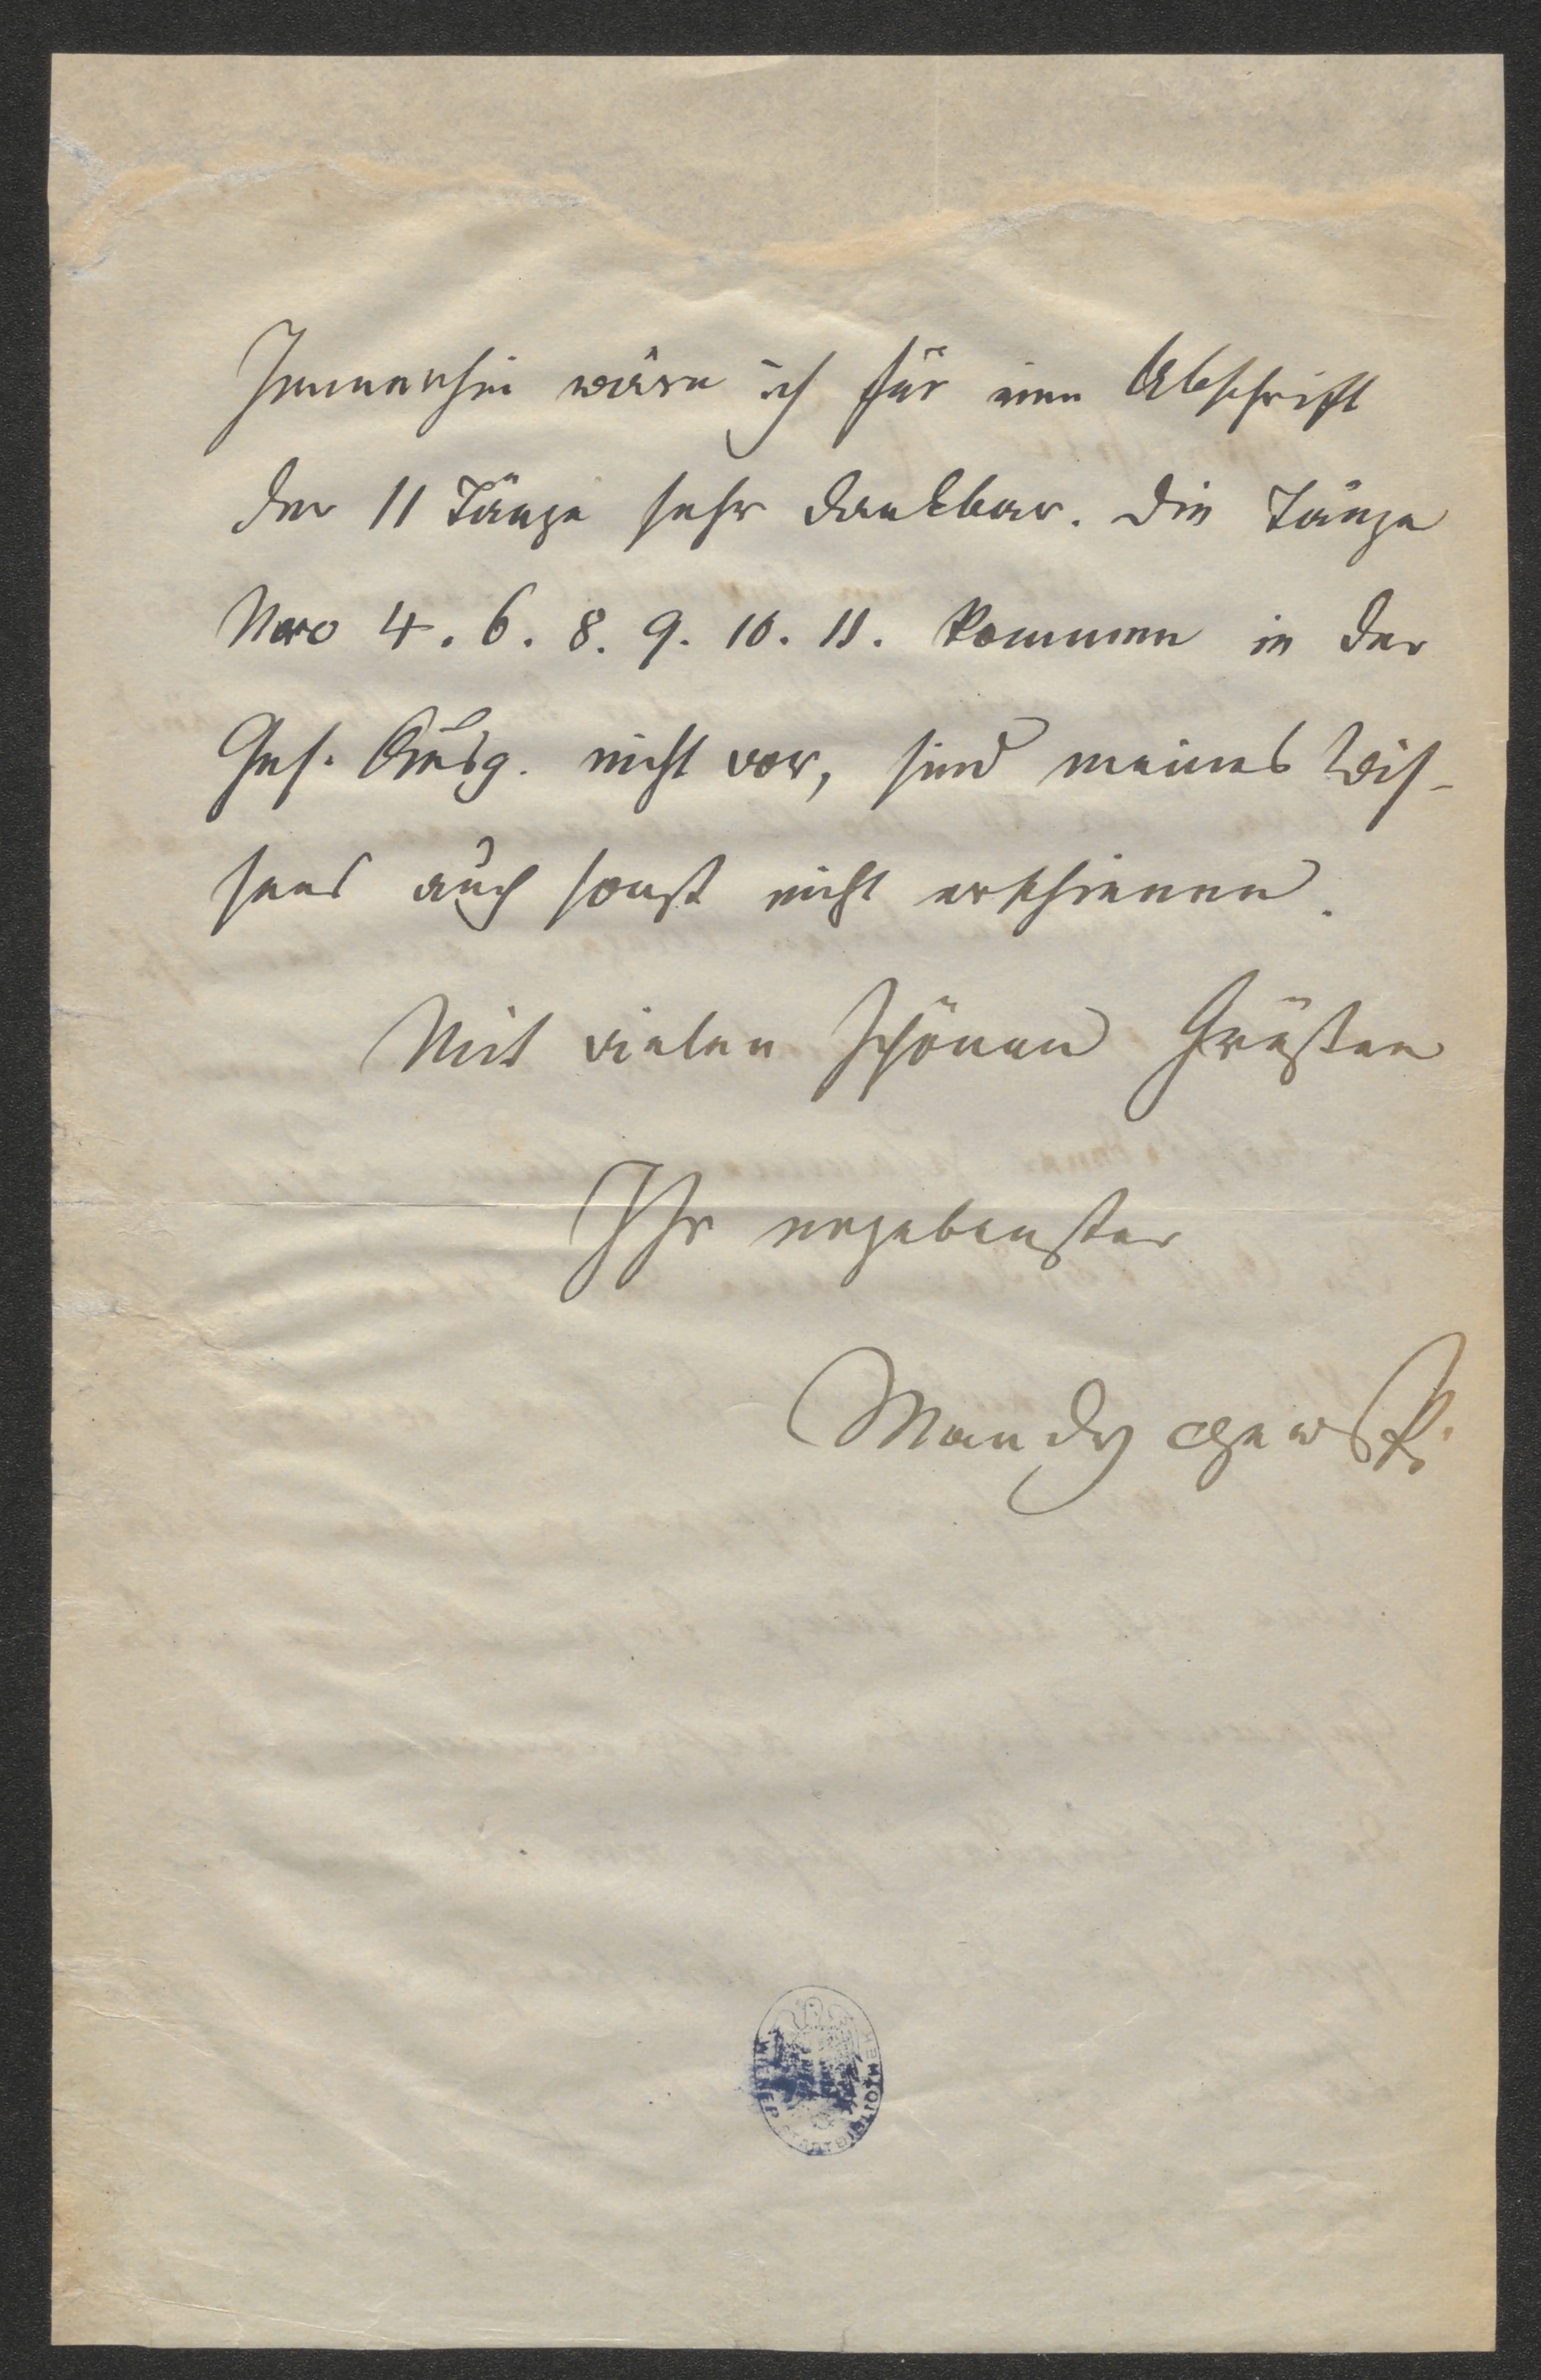 Immerhin wäre ich für eine Abschrift
der 11 Tänze sehr dankbar. Die Tänze
Nro 4. 6. 8. 9. 10. 11. kommen in der
Ges. Ausg. nicht vor, sind meines Wis-
sens auch sonst nicht erschienen.
Mit vielen schönen Grüßen
Ihr ergebenster
Mandyczewski
WIENER STADTBIBLIOTHEK